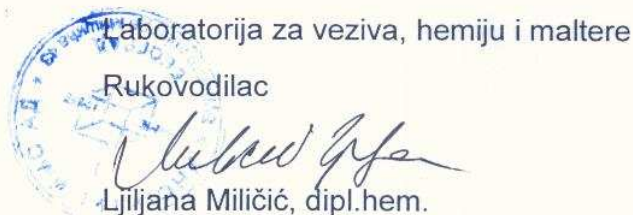 Laboratorija za veziva, hemiju i maltere
Rukovodilac
Ljiljana Miličić, dipl.hem.